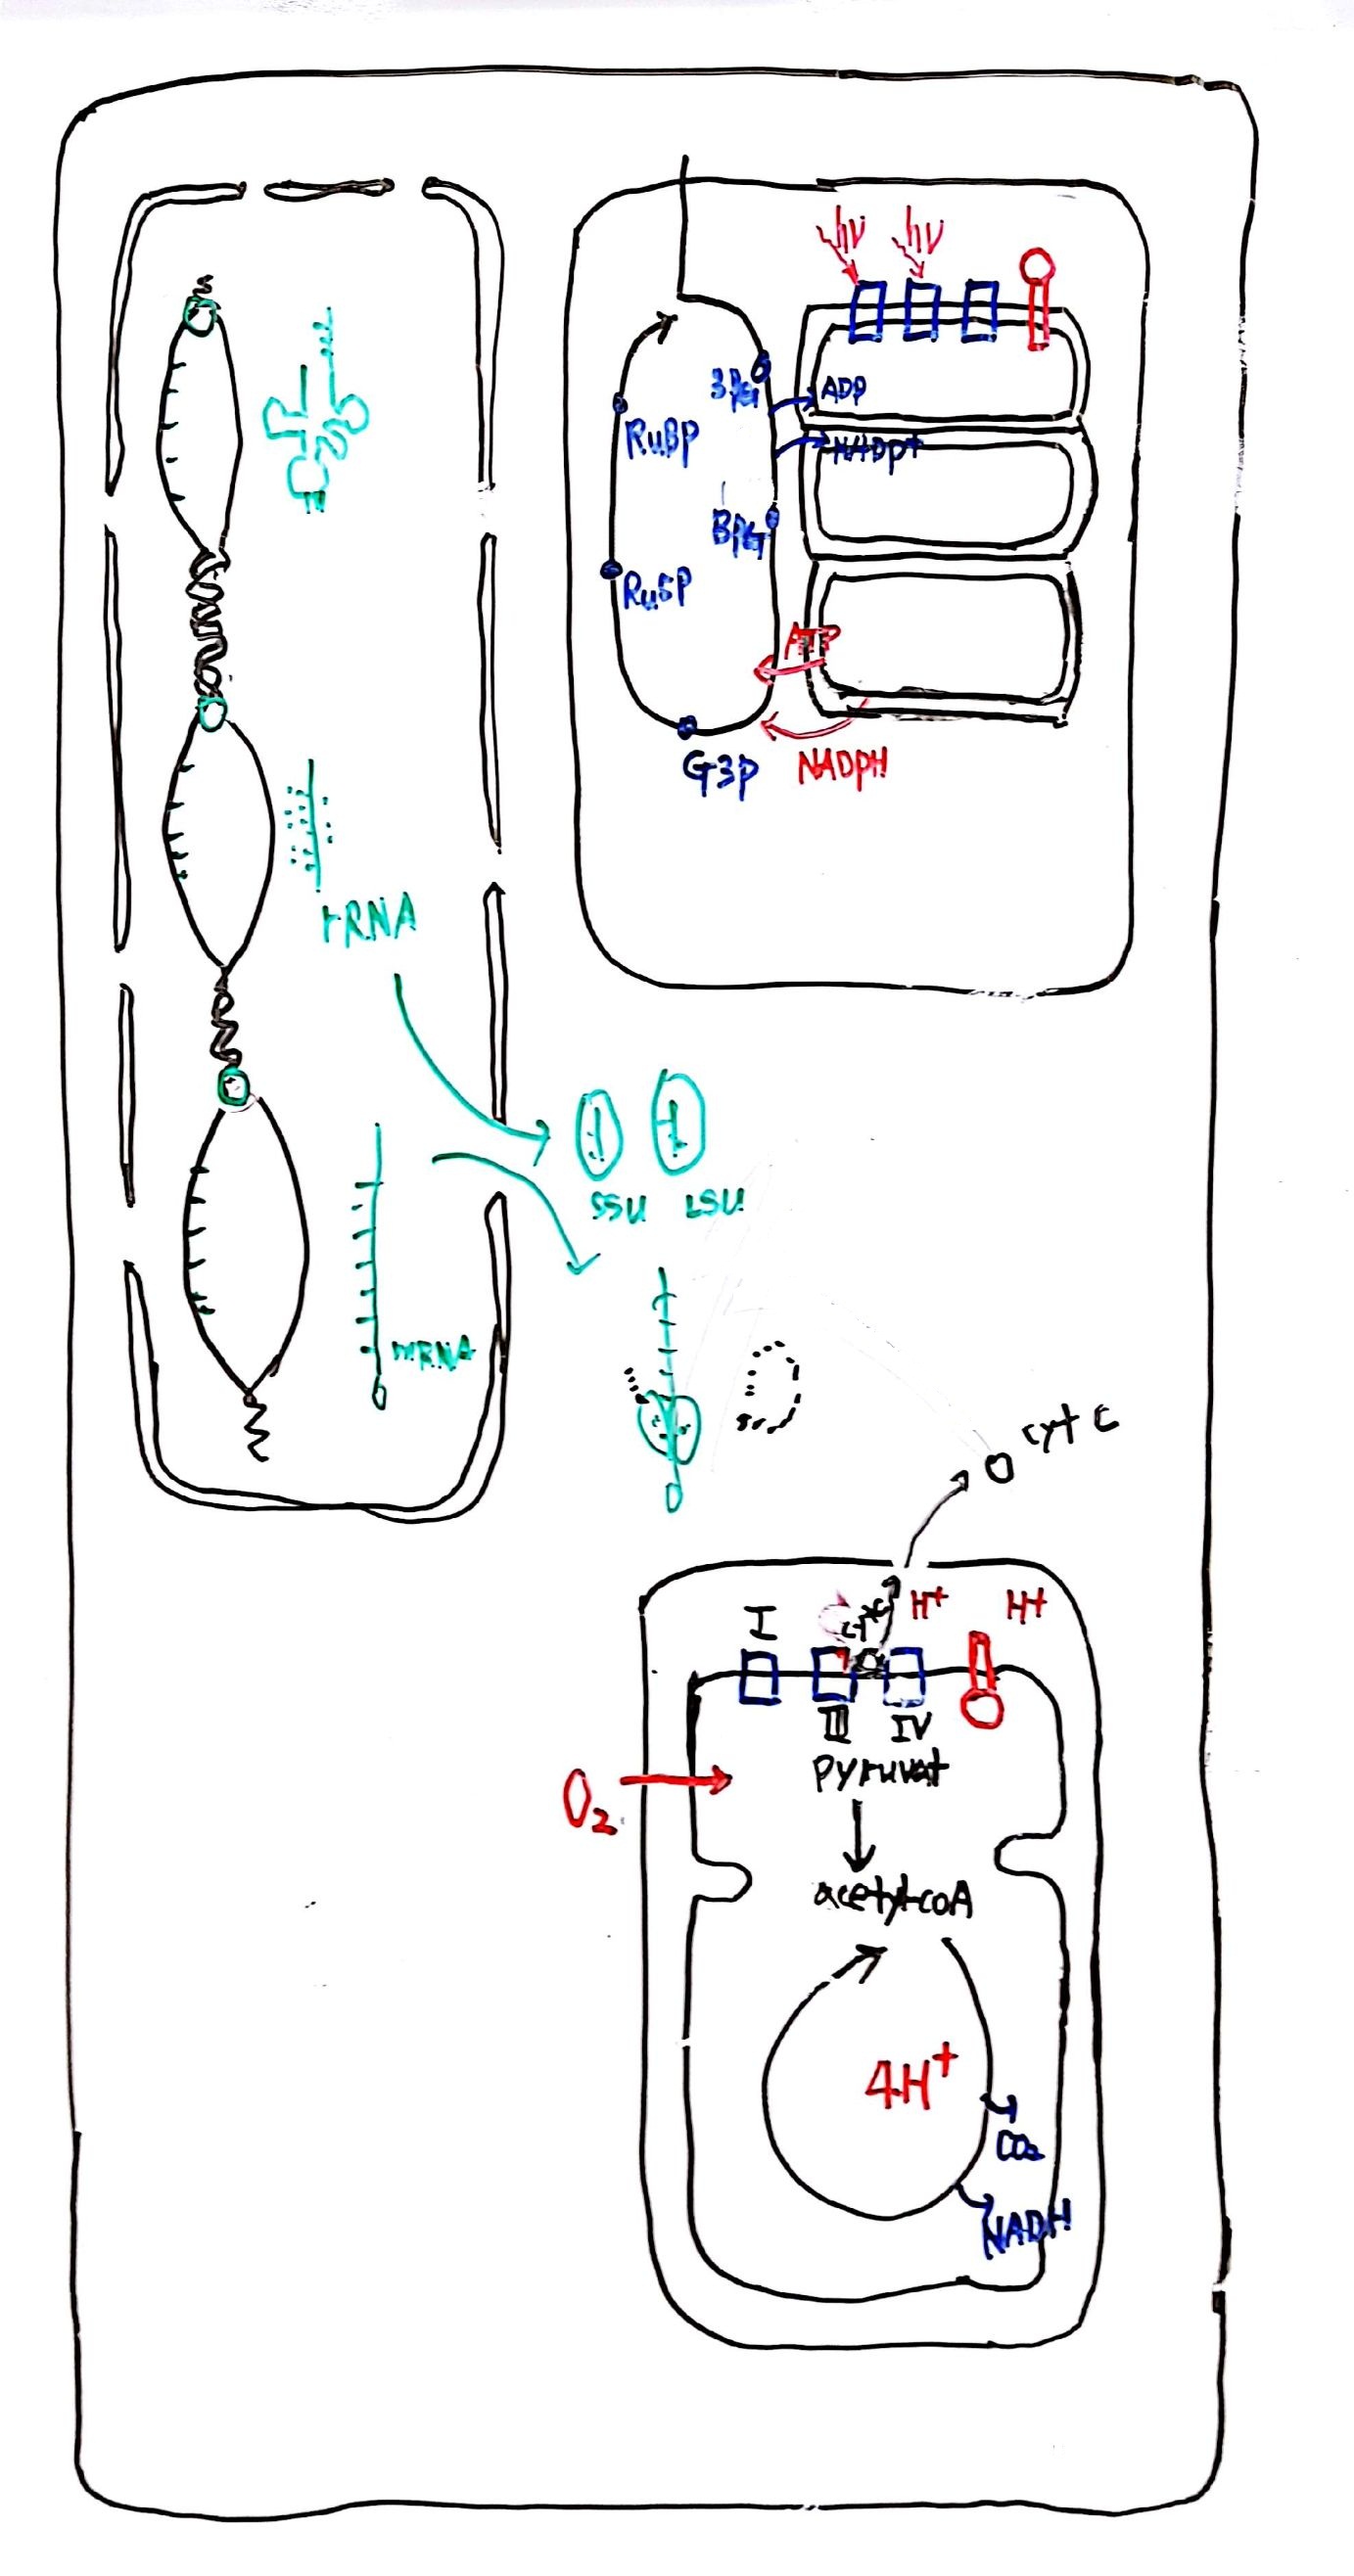 hν hν
3PG
ADP
RuBP
NADP+
BPG
Ru5P
ATP
G3P
NADPH
rRNA
SSU LSU
mRNA
cyt c
cyt c
H+ H+
I
III IV
pyruvat
O2
acetyl-coA
4H+
CO2
NADH